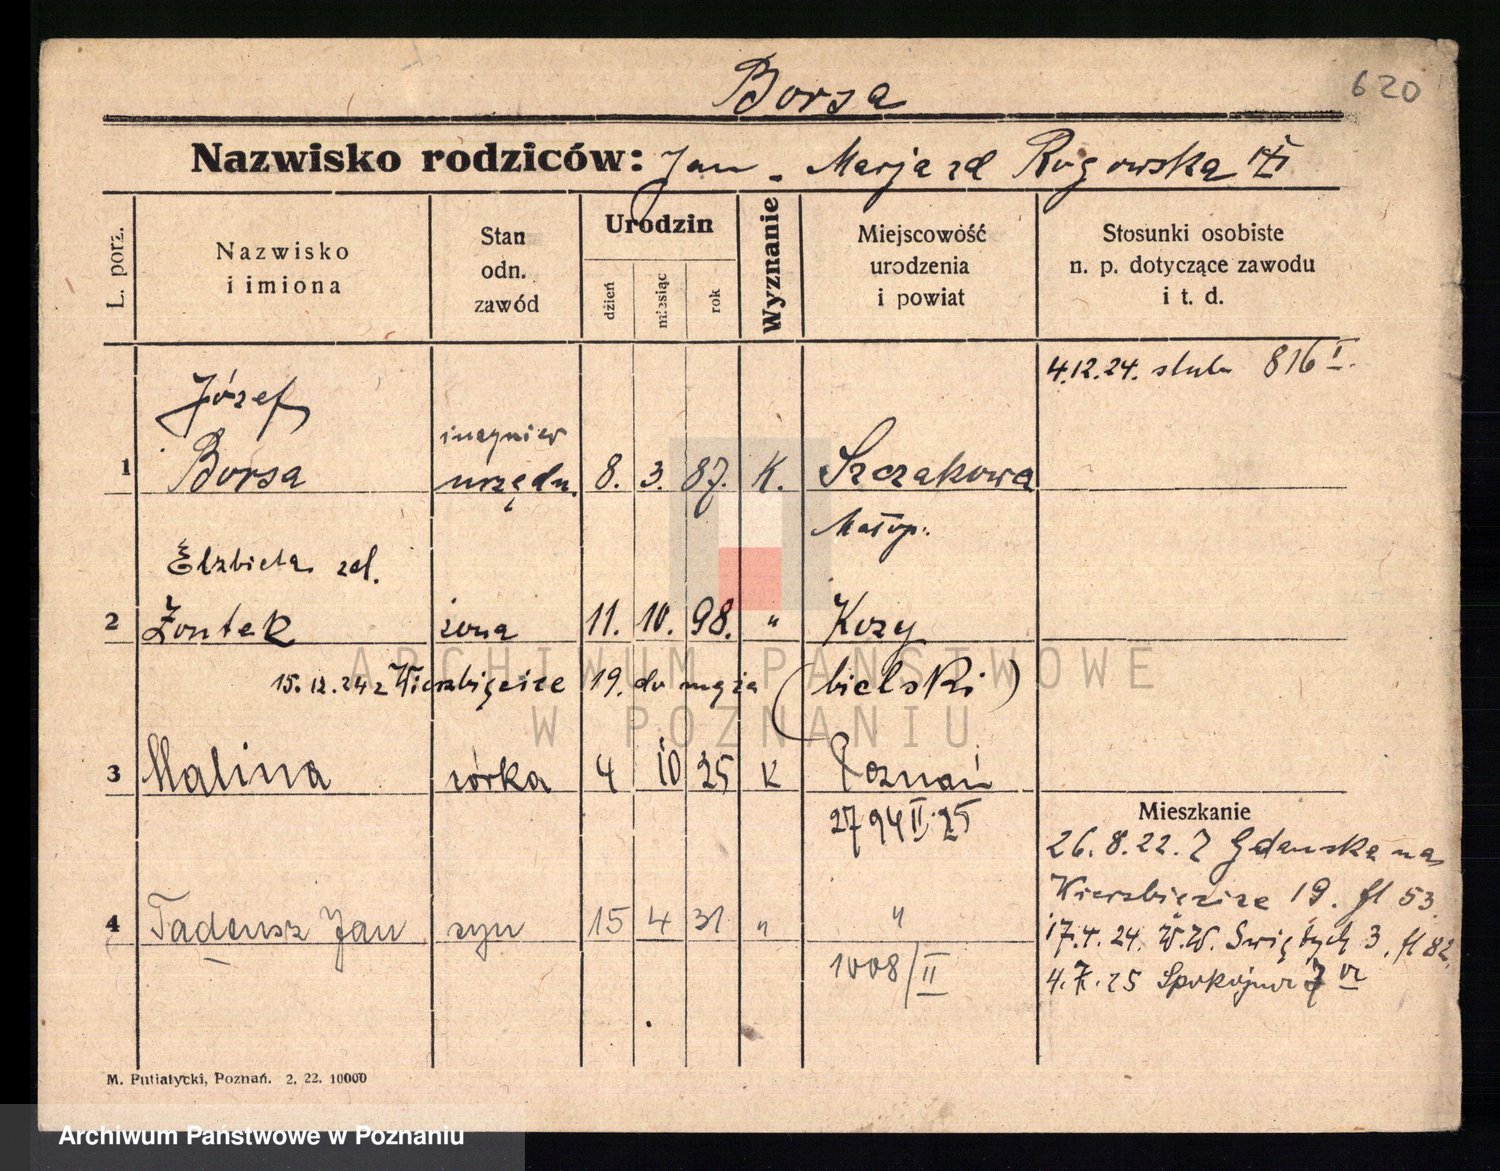 Borsa
620
Nazwisko rodziców: Jan - Marja zd Rogowska
L. porz.
Nazwisko i imiona
Stan odn. zawód
Urodzin
dzień
miesiąc
rok
Wyznanie
Miejscowość urodzenia i powiat
Stosunki osobiste n. p. dotyczące zawodu i t. d.
4.12.24. ślub 816 I.
Józef
inżynier
1 Borsa urzędn. 8. 3. 87. K. Szczakowa
Małop.
Elżbieta zd.
2 Żontek żona 11. 10. 98. " Kozy
15.12.24 z Wierzbięcice 19. do męża (bielski)
3 Halina córka 4 10 25 K Poznań
2794 II 25
Mieszkanie
26.8.22. Z Gdańska na
Wierzbięcice 19. fl 53.
4 Tadeusz Jan syn 15 4 31 " "
17.4.24. W.W. Świętych 3. fl 82.
1008/II
4.7.25 Spokojna
M. Putiatycki, Poznań. 2. 22. 10000
ARCHIWUM PAŃSTWOWE
W POZNANIU
Archiwum Państwowe w Poznaniu